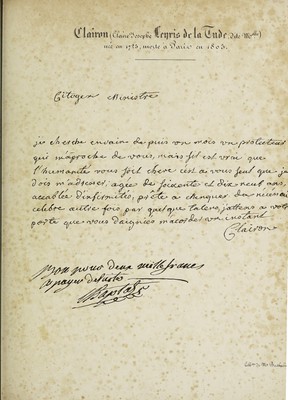 Clairon (Claire Josephe Leyris de la Tude, dite Mlle)
née en 1723, morte à Paris en 1803.
Citoyen Ministre
je cherche envain de puis un mois un protecteur
qui m'aproche de vous, mais s'il est vrai que
l'humanité vous soit chere cest a vous seul que je
dois m'adresser, agée de soixante et dix neuf ans,
accablée d'infirmités, prête a manquer du nécessaire
celebre autre fois, par quelque talens, j'attens a votre
porte que vous daigniés m'acorder un instant
Clairon
Bon pour deux mille francs
a payer de suite
Chaptal